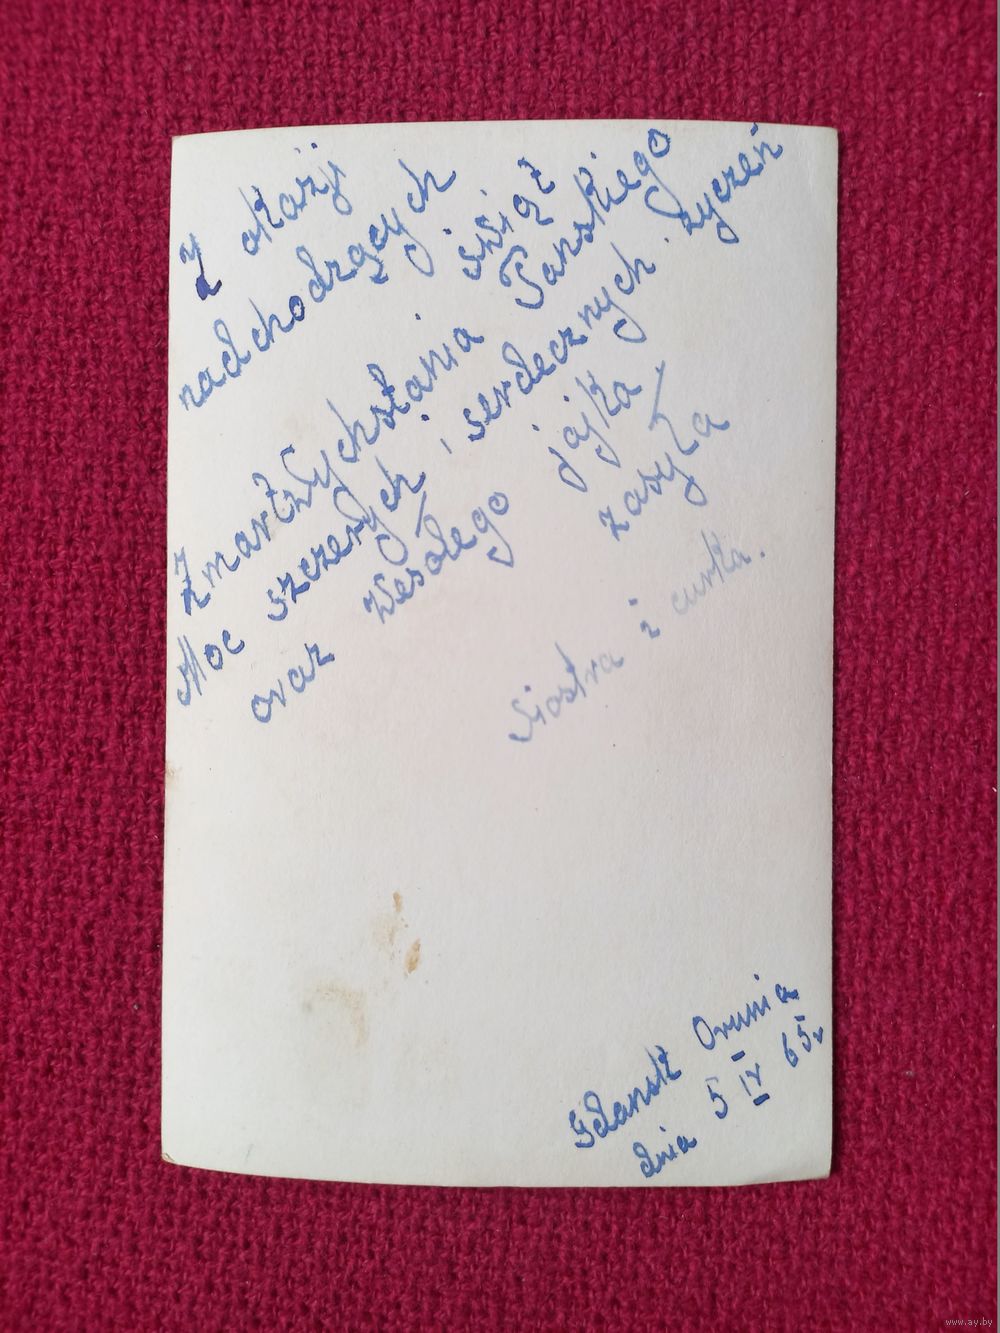 Z okazji
nadchodzących świąt
Zmartwychstania Panskiego
Moc szczerych i serdecznych życzeń
oraz Wesołego jajka,
zasyła
Siostra i curka.
Gdansk Orunia
dnia 5 IV 65r
www.ay.by